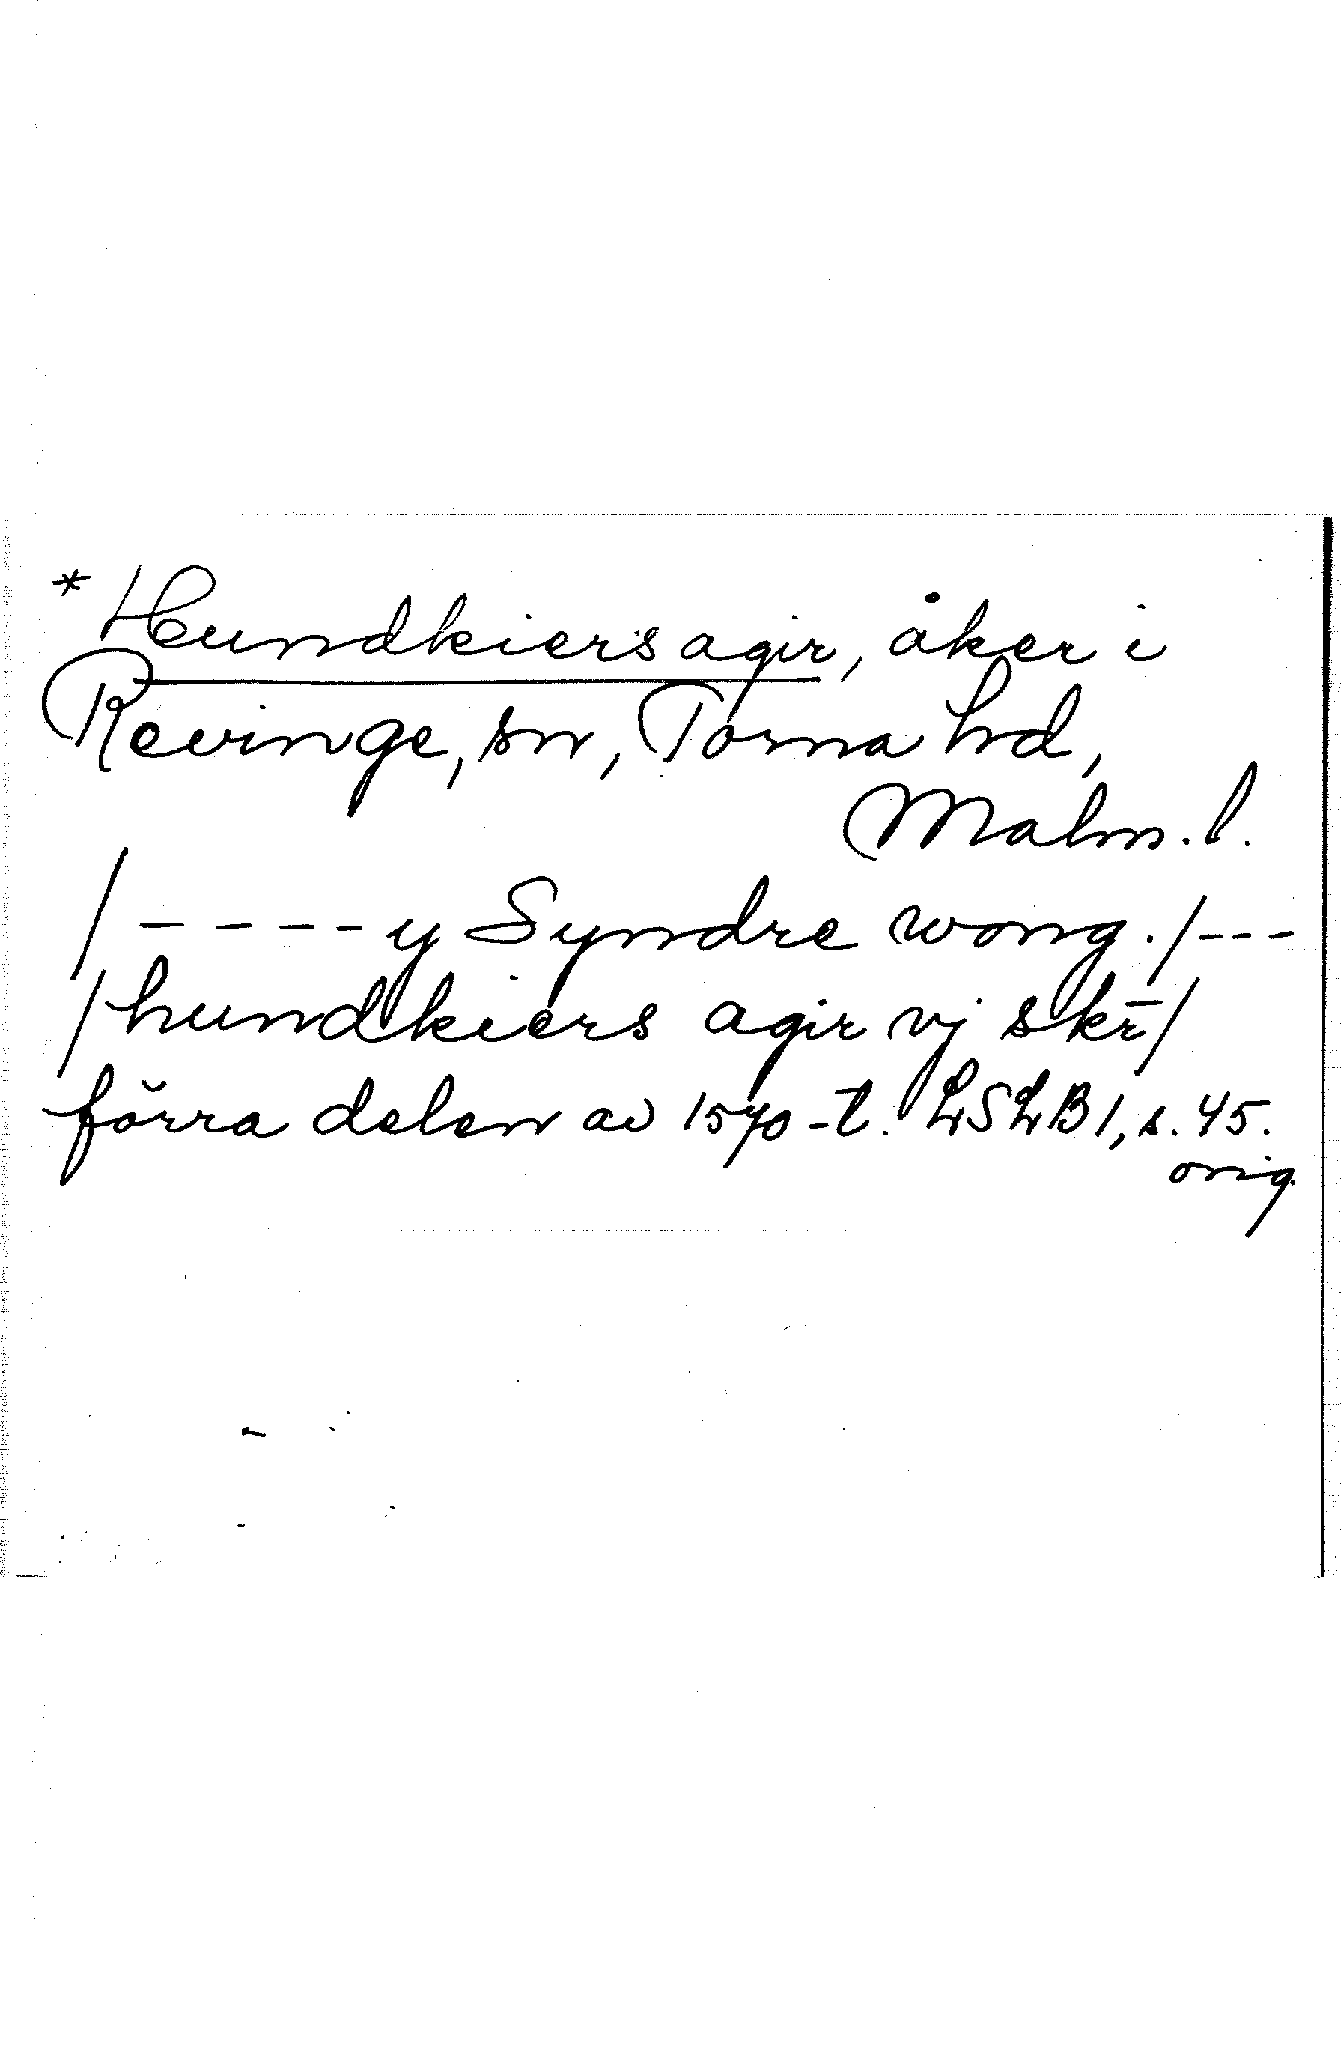 * Hundkiers agir, åker i
Revinge, sn, Torna hd,
Malm. l.
/ - - - - y Syndre wong. / - - -
/ hundkiers agir vj skr̄ /
förra delen av 1570-t. LSLB 1, s. 45.
orig.